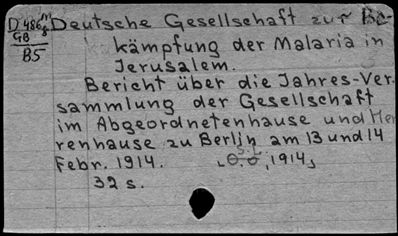 D 486m/8 Deutsche Gesellschaft zur Be-
GB kämpfung der Malaria in
B5 Jerusalem.
Bericht über die Jahres-Ver-
sammlung der Gesellschaft
im Abgeordnetenhause und Her
renhause zu Berlin am 13 und 14
Febr. 1914. S.l. O.O., 1914,
32 s.